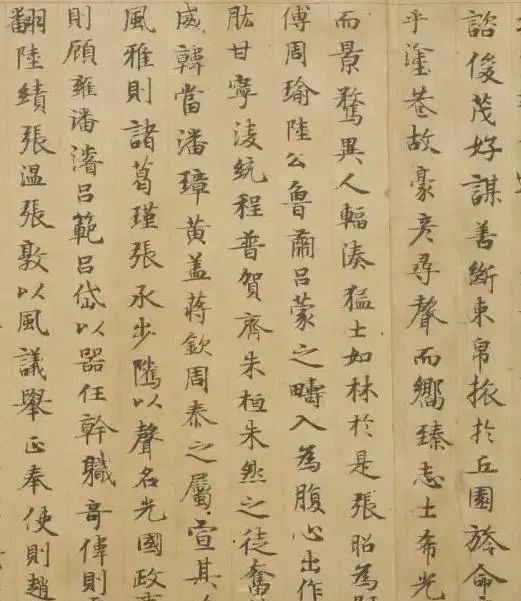 諮俊茂好謀善斷束帛旅於丘園旍命
乎塗巷故豪彥尋聲而嚮臻志士希光
而景騖異人輻湊猛士如林於是張昭為
傅周瑜陸公魯肅呂蒙之疇入為腹心出作
肱甘寧淩統程普賀齊朱桓朱然之徒奮
威韓當潘璋黃蓋蔣欽周泰之屬宣其
風雅則諸葛瑾張承步騭以聲名光國政
則顧雍潘濬呂範呂岱以器任幹職奇偉則
翻陸績張溫張敦以風議舉正奉使則趙